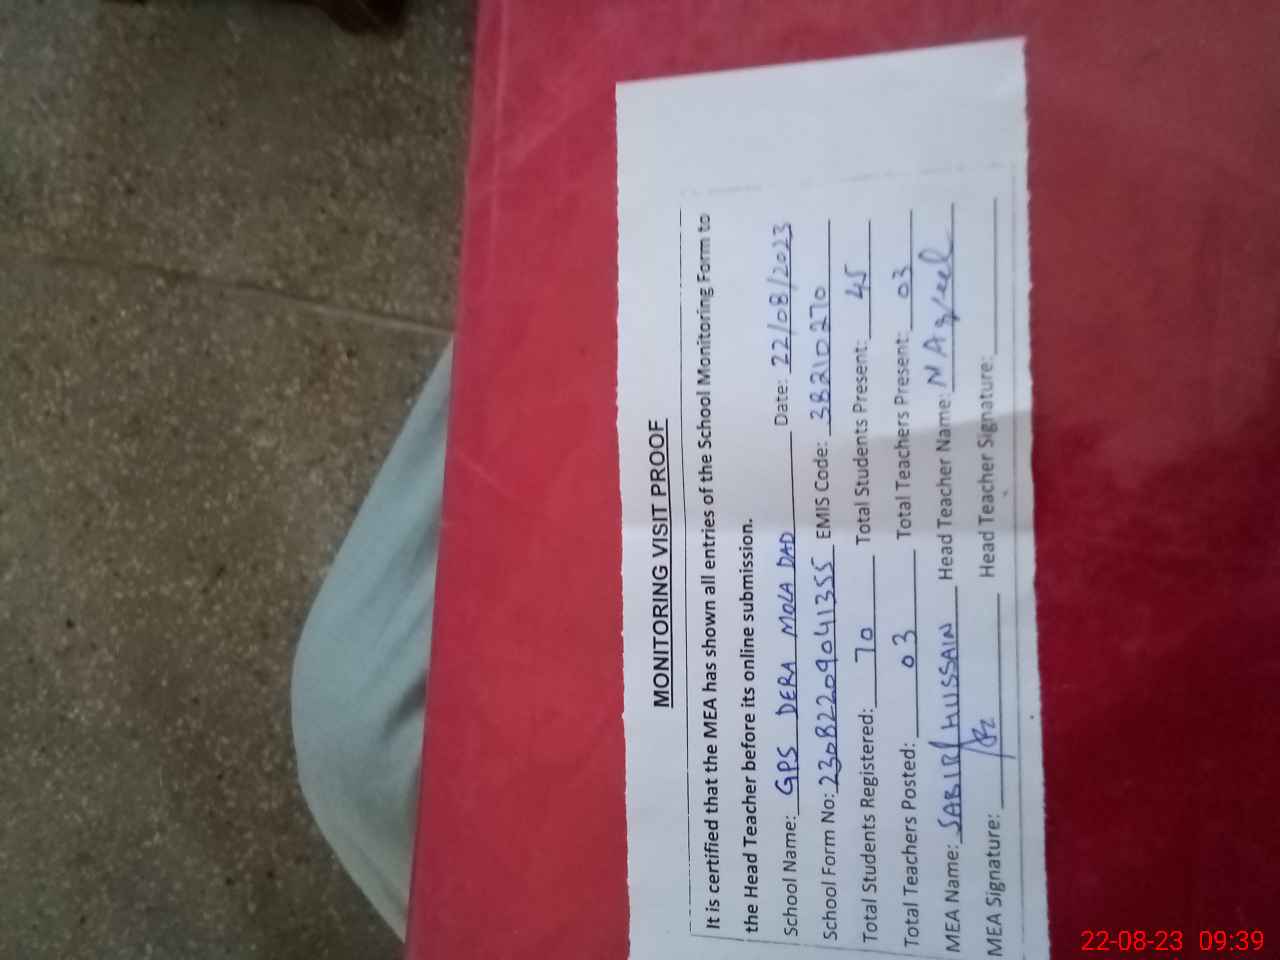 MONITORING VISIT PROOF
It is certified that the MEA has shown all entries of the School Monitoring Form to
the Head Teacher before its online submission.
School Name: GPS DERA MOLA DAD Date: 22/08/2023
School Form No: 230822209041355 EMIS Code: 38210270
Total Students Registered: 70 Total Students Present: 45
Total Teachers Posted: 03 Total Teachers Present: 03
MEA Name: SABIR HUSSAIN Head Teacher Name:
MEA Signature: Head Teacher Signature:
22-08-23 09:39